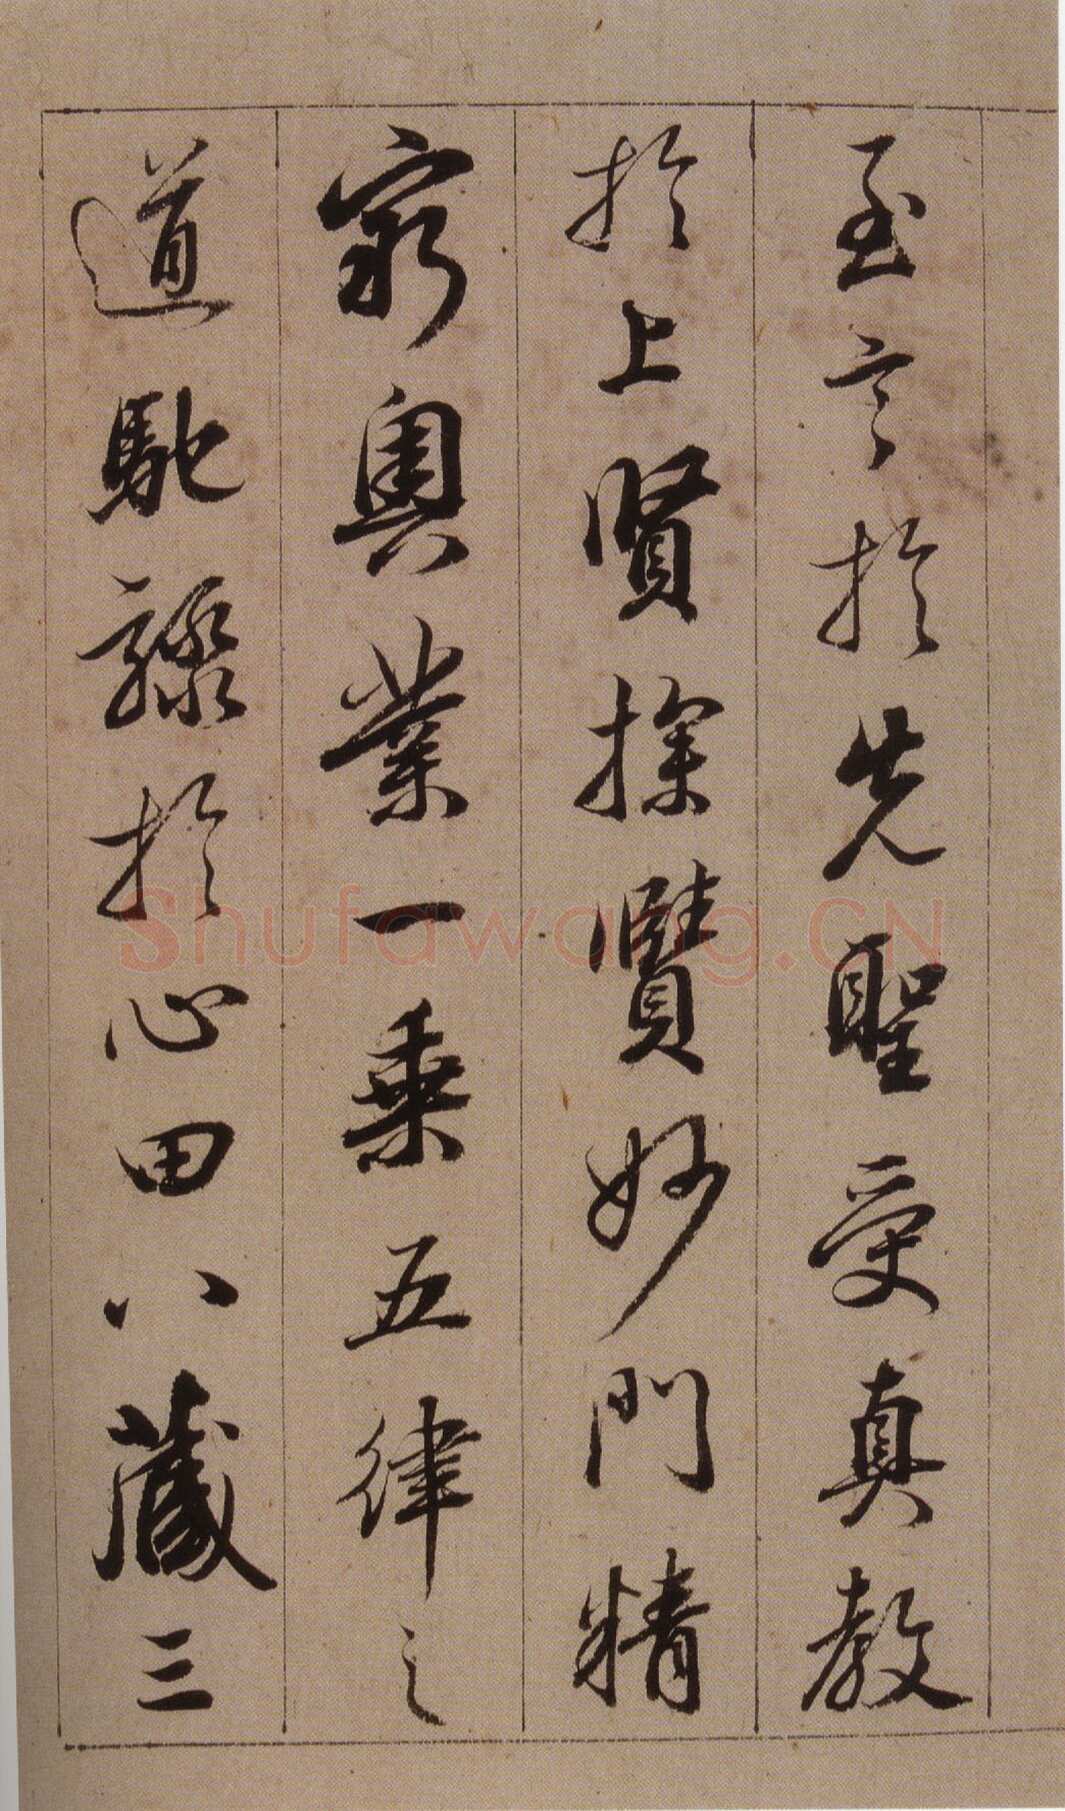 至言於先聖受真教
於上賢探賾妙門精
窮奧業一乘五律之
道馳驟於心田八藏三
Shufawang.CN